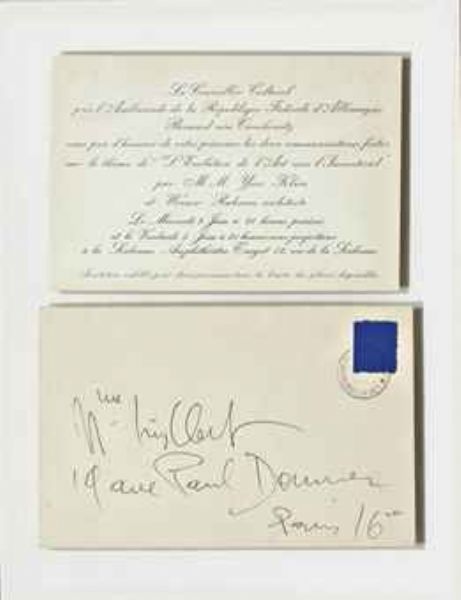 Le Conseiller Culturel
près l'Ambassade de la République Fédérale d'Allemagne
Bernard von
vous prie d'honorer de votre présence les deux communications faites
sur le thème de "L'Evolution de l'Art vers l'Immatériel"
par M.M. Yves Klein
et Werner Ruhnau architecte
Le Mercredi 3 Juin à 21 heures précises
et le Vendredi 5 Juin à 21 heures avec projections
à la Sorbonne Amphithéâtre Turgot 17, rue de la Sorbonne
Mme Iris Clert
14 ave Paul Doumer
Paris 16